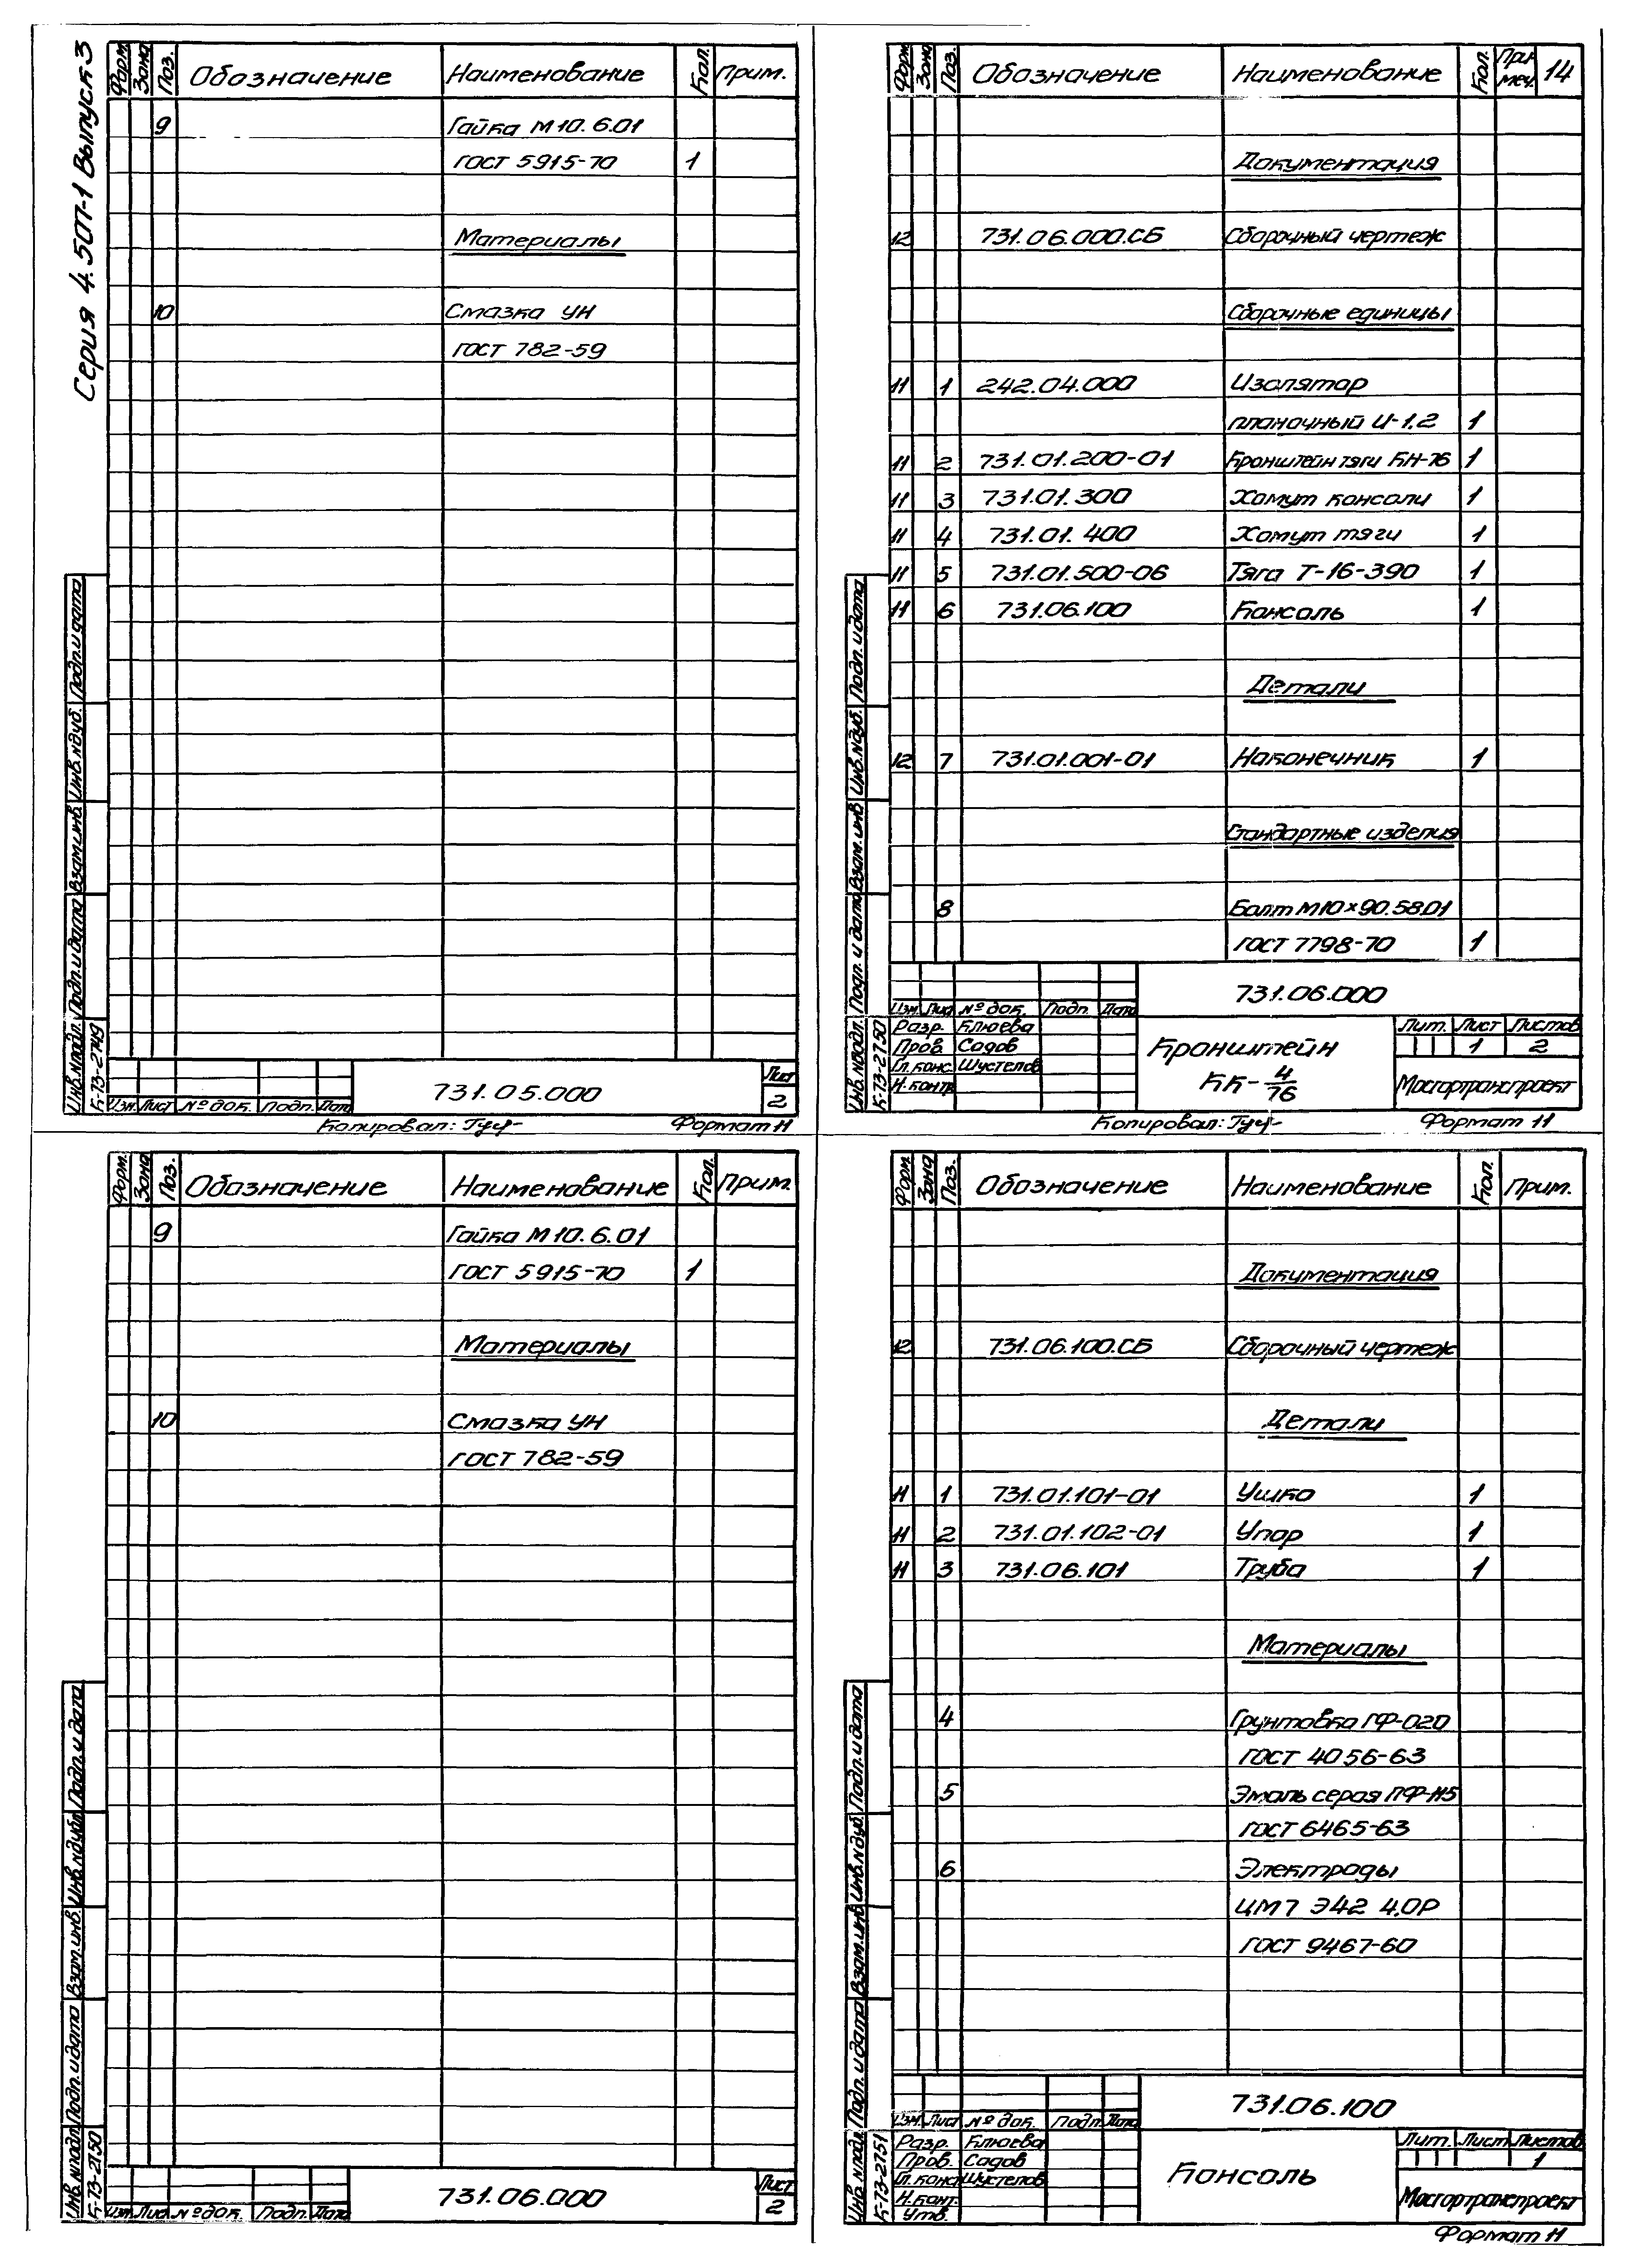 Серия 4.507-1 Выпуск 3
Форм. Зона Поз. Обозначение Наименование Кол. Прим.
9 Гайка М10.6.01
ГОСТ 5915-70 1
Материалы
10 Смазка УН
ГОСТ 782-59
Подп. и дата
Инв. № дуб.
Взам. инв.
Подп. и дата
Инв. № подл.
К-73-2749
Изм. Лист № док. Подп. Дата
731.05.000
Лист
2
Копировал: Формат 11
Форм. Зона Поз. Обозначение Наименование Кол. Примеч. 14
Документация
12 731.06.000.СБ Сборочный чертеж
Сборочные единицы
11 1 242.04.000 Изолятор
планочный И-1,2 1
11 2 731.01.200-01 Кронштейн тяги КН-76 1
11 3 731.01.300 Хомут консоли 1
11 4 731.01.400 Хомут тяги 1
11 5 731.01.500-06 Тяга Т-16-390 1
11 6 731.06.100 Консоль 1
Детали
12 7 731.01.001-01 Наконечник 1
Стандартные изделия
8 Болт М10×90.58.01
ГОСТ 7798-70 1
Подп. и дата
Инв. № дуб.
Взам. инв.
Подп. и дата
Инв. № подл.
К-73-2750
731.06.000
Изм. Лис № док. Подп. Дата
Разр. Клюева
Пров. Садов
Гл. конс. Шустелов
Н. контр.
Кронштейн
КК-4/76
Лит. Лист Листов
1 2
Мосгортранспроект
Копировал: Формат 11
Форм. Зона Поз. Обозначение Наименование Кол. Прим.
9 Гайка М10.6.01
ГОСТ 5915-70 1
Материалы
10 Смазка УН
ГОСТ 782-59
Подп. и дата
Инв. № дубл.
Взам. инв.
Подп. и дата
Инв. № подл.
К-73-2750
Изм. Лис № док. Подп. Дата
731.06.000
Лист
2
Форм. Зона Поз. Обозначение Наименование Кол. Прим.
Документация
12 731.06.100.СБ Сборочный чертеж
Детали
11 1 731.01.101-01 Ушко 1
11 2 731.01.102-01 Упор 1
11 3 731.06.101 Труба 1
Материалы
4 Грунтовка ГФ-020
ГОСТ 4056-63
5 Эмаль серая ПФ-115
ГОСТ 6465-63
6 Электроды
ЦМ7 Э42 4,0Р
ГОСТ 9467-60
Подп. и дата
Инв. № дуб.
Взам. инв.
Подп. и дата
Инв. № подл.
К-73-2751
731.06.100
Изм. Лист № док. Подп. Дата
Разр. Клюева
Пров. Садов
Гл. конс Шустелов
Н. конт.
Утв.
Консоль
Лит. Лист Листов
1
Мосгортранспроект
Формат 11